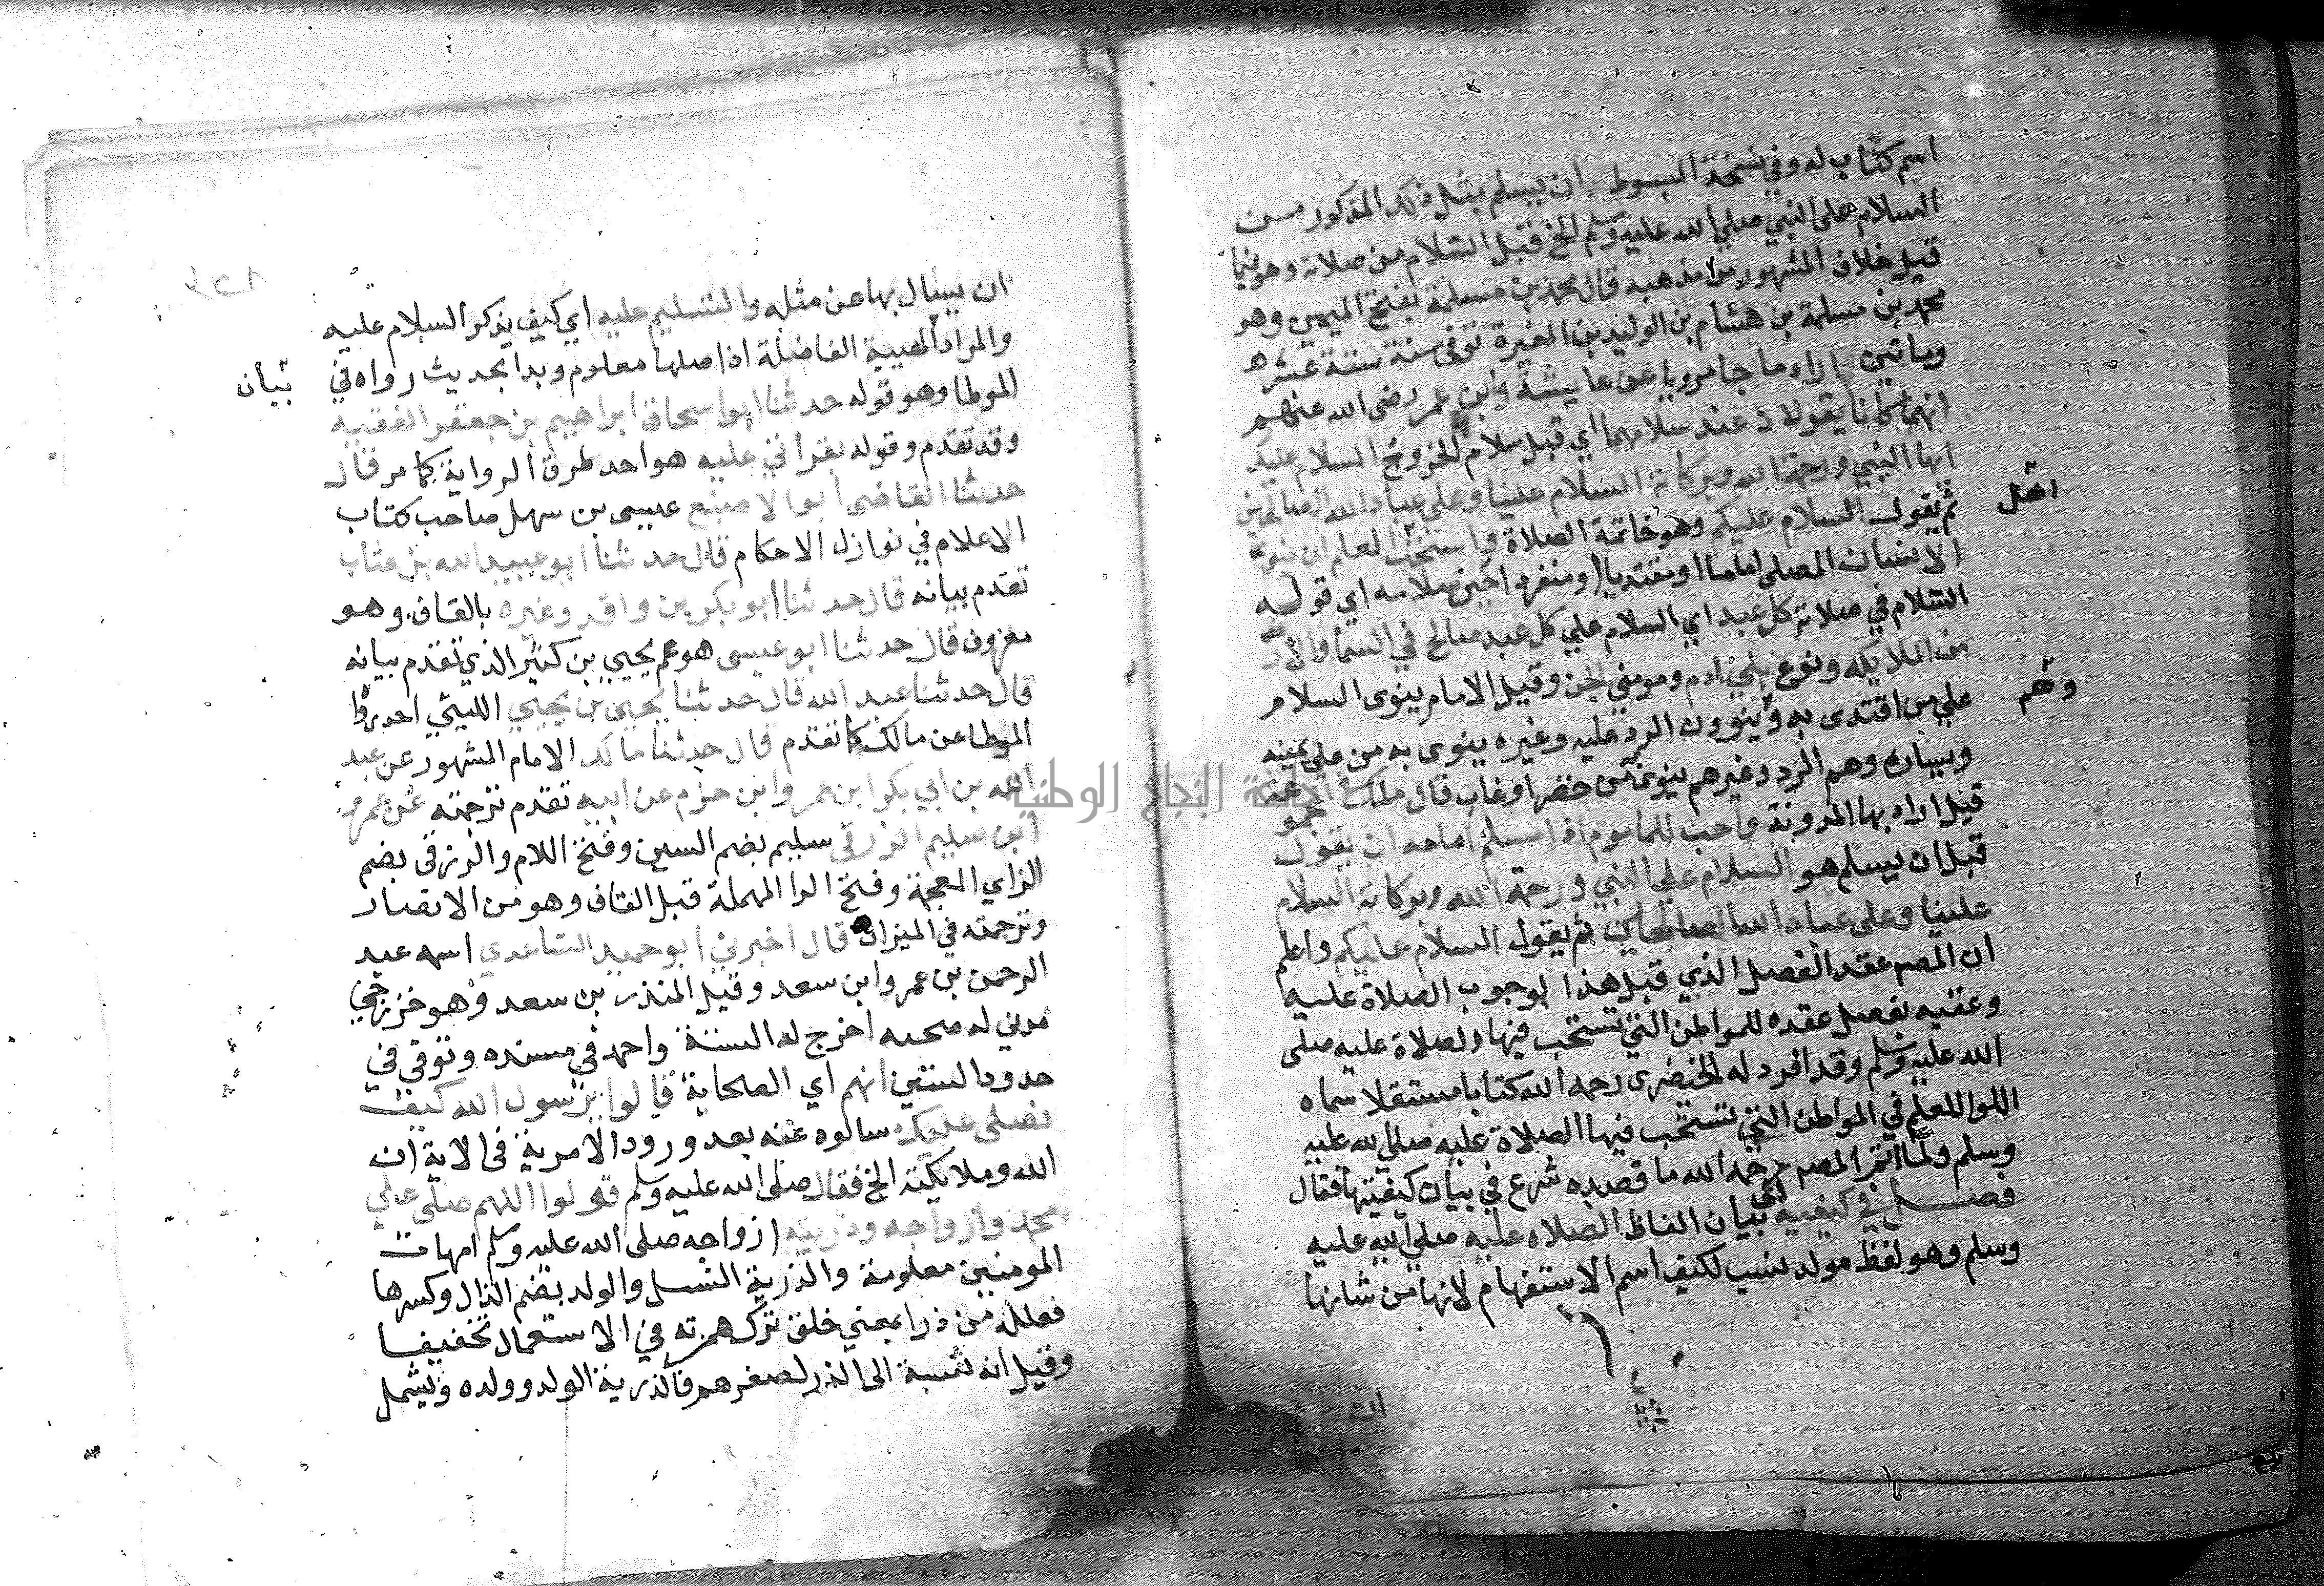 اسم كتاب له وفي نسخة المبسوط ان يسلم بمثل ذلك المذكور من
السلام على النبي صلى الله عليه وسلم الخ قبل السلام من صلاته وهو فيما
قيل خلاف المشهور من مذهبه قال محمد بن مسلمة بفتح الميمين وهو
محمد بن مسلمة بن هشام بن الوليد بن المغيرة توفى سنة ستة عشر
وماتين اراد ما جا مرويا عن عايشة وابن عمر رضى الله عنهم
انهما كانا يقولان عند سلامهما اي قبل سلام الخروج السلام عليك
ايها النبي ورحمة الله وبركاته السلام علينا وعلى عباد الله الصالحين
ثم يقول السلام عليكم وهو خاتمة الصلاة واستحب اهل العلم ان ينوي
الانسان المصلى اماما او مقتديا او منفردا حين سلامه اي قوله
السلام في صلاته كل عبد اي السلام علي كل عبد صالح في السما والارض
من الملايكه ونوع بني ادم ومومني الجن وقيل الامام ينوى السلام
علي من اقتدى به وهم ينوون الرد عليه وغيره ينوى به من على يمينه
ويساره وهم الرد وغيرهم ينوى من حضر او غاب قال ملك في المجموعة
قيل اراد بها المدونة واحب للماموم اذا سلم امامه ان يقول
قبل ان يسلم هو السلام علي النبي ورحمة الله وبركاته السلام
علينا وعلى عباد الله الصالحين ثم يقول السلام عليكم واعلم
ان المصم عقد الفصل الذي قبل هذا لوجوب الصلاة عليه
وعقبه بفصل عقده للمواطن التي تستحب فيها الصلاة عليه صلى
الله عليه وسلم وقد افرد له الخيضرى رحمه الله كتابا مستقلا سماه
اللوا المعلم في المواطن التي تستحب فيها الصلاة عليه صلى الله عليه
وسلم ولما اتم المصم رحمه الله ما قصده شرع في بيان كيفيتها فقال
فصل في كيفية اي بيان الفاظ الصلاه عليه صلى الله عليه
وسلم وهو لفظ مولد نسب لكيف اسم الاستفهام لانها من شانها
ان
اهل
وهم
ان يسال بها عن مثله والتسليم عليه اي كيف يذكر السلام عليه
والمراد الفاضلة اذ اصلها معلوم وبدا بحديث رواه في
بيان
الموطا وهو قوله حدثنا ابو اسحاق ابراهيم بن جعفر الفقيه
وقد تقدم وقوله بقرأتي عليه هو احد طرق الرواية كما مر قال
حدثنا القاضى ابو الاصبغ عيسى بن سهل صاحب كتاب
الاعلام في نوازل الاحكام قال حدثنا ابو عبيد الله بن عتاب
تقدم بيانه قال حدثنا ابو بكر بن واقد وغيره بالقاف وهو
معروف قال حدثنا ابو عيسى هو عم يحيي بن كثير الذي تقدم بيانه
قال حدثنا عبيد الله قال حدثنا يحيى بن يحيي الليثي احد
الموطا عن مالك كما تقدم قال حدثنا مالك الامام المشهور عن عبد
الله بن ابي بكر ابن عمرو ابن حزم عن ابيه تقدم ترجمته عن عمرو
ابن سليم الزرقى سليم بضم السين وفتح اللام والزرقى بضم
الزاي المعجمة وفتح الرا المهملة قبل القاف وهو من الانصار
وترجمته في الميزان قال اخبرني ابو حميد الساعدي اسمه عبد
الرحمن بن عمرو ابن سعد وقيل المنذر بن سعد وهو خزرجي
مدني له صحبه اخرج له الستة واحمد في مسنده وتوفي في
حدود الستين انهم اي الصحابة قالوا يرسول الله كيف
نصلى عليك سالوه عنه بعد ورود الامر به في الاية ان
الله وملايكته الخ فقال صلى الله عليه وسلم قولوا اللهم صلى علي
محمد وازواجه وذريته ازواجه صلى الله عليه وسلم امهات
المومنين معلومة والذرية النسل والولد بضم الذال وكسرها
من ذرا بمعني خلق ترك همزته في الاستعمال تخفيفا
وقيل انه نسبة الى الذر لصغرهم فالذرية الولد وولده ويشمل